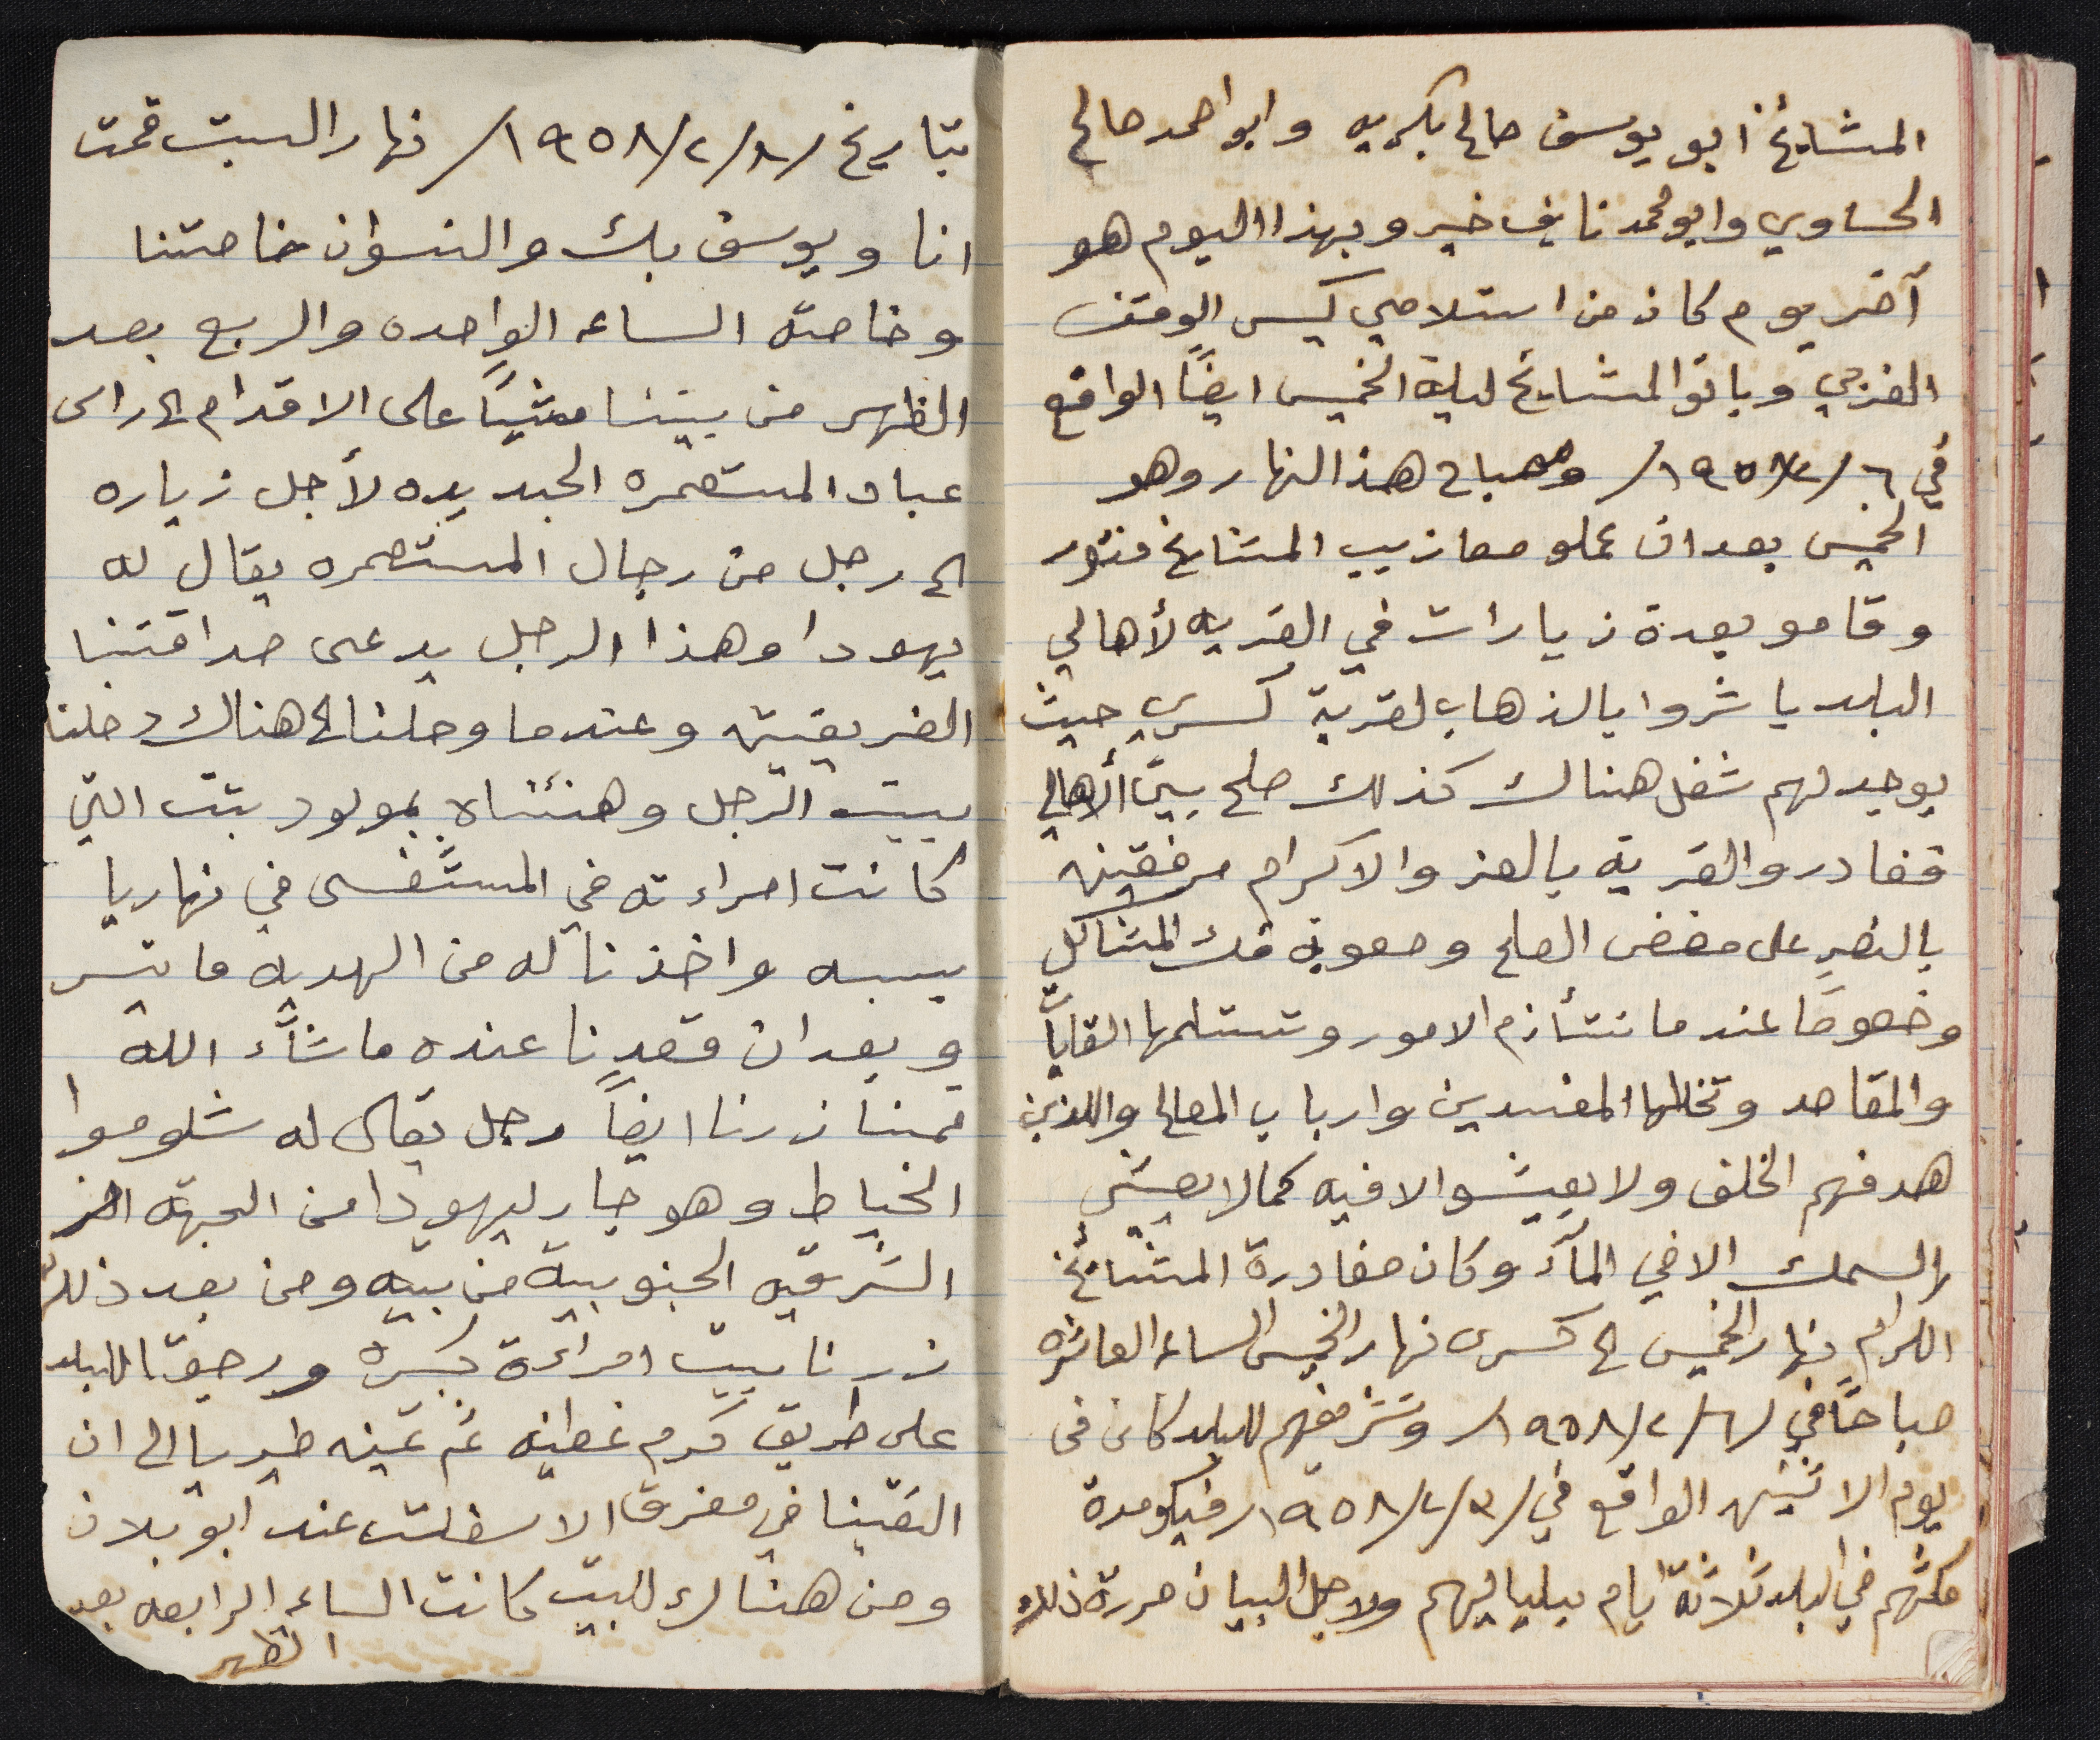 المشائخ ابو يوسف صالح بكريه وابو احمد صالح
الحساوي وابو محمد نايف خير وبهذا اليوم هو
آخر يوم كان من استلامي كيس الوقف
العزمي وباتوا المشايخ ليلة الخميس ايضاً الواقع
في ٦/٢/١٩٥٨/ وصباح هذا النهار وهو
الخميس بعد ان عملو معازيب المشايخ فتور
وقامو بعدة زيارات في القريه لأهالي
البلد باشروا بالذهاب لقرية كسرى حيث
يوجد لهم شغل هناك كذلك صلح بين الأهالي
فغادرو القرية بالعز والاكرام مرفقين
بالنصر على مضض الصلح وصعوبة فك المشاكل
وخصوصاً عندما تتأزم الامور وتستلمها
والمقاصد وتخللها المفسدين وارباب المصالح واللذين
هدفهم الخلف ولا يعيشوا الا فيه كما لا يعيش
السمك الا في المآء وكان مغادرة المشائخ
الكرام نهار الخميس الى كسرى نهار الخميس الساعه العاشره
صباحاً في /٦/٢/١٩٥٨/ وتشرفهم للبلد كان في
يوم الاثنين الواقع في /٣/٢/١٩٥٨/ فيكو مدة
مكثهم في البلد ثلاثة ايام بلياليهم ولاجل البيان حررة ذلك
بتاريخ /٨/٢/١٩٥٨/ نهار السبت قمت
انا ويوسف بك والنسوان خاصتنا
وخاصته الساعه الواحده والربع بعد
الظهر من بيتنا مشياً على الاقدام الى راس
عباد المستعمره الجديده لأجل زياره
الى رجل من رجال المستعمره يقال له
يهودا وهذا الرجل يدعى صداقتنا
الفريقين وعندما وصلنا الى هناك دخلنا
بيت الرجل وهنئناه بمولود بنت التي
كانت امراءته في المستشفى في نهاريا
بسببه واخذنا له من الهديه ما تيسر
وبعد ان قعدنا عنده ما شآء الله
قمنا زرنا ايضاً رجل يقال له شلوموا
الخياط وهو جار ليهودا من الجهته
الشرقيه الجنوبية من بيته ومن بعد ذلك
زرنا بيت امراءة ورجعنا للبلد
على طريق كرم غطينه ثم عينه طيريا الى ان
التقينا في مفرق الاسفلت عند ابو بلان
ومن هناك للبيت كانت الساعه الرابعه بعد
الظهر